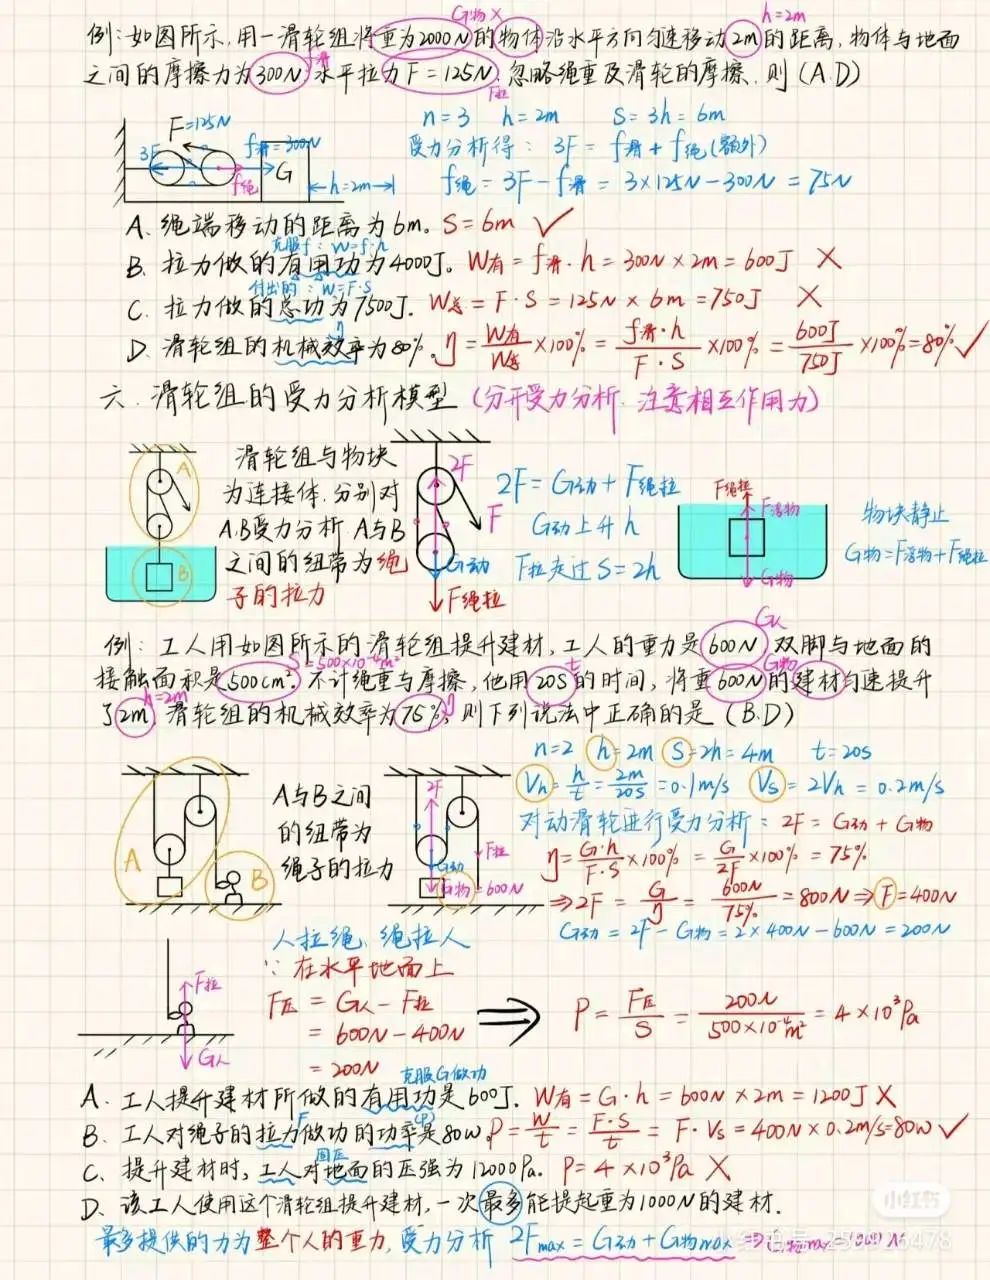 G物 X
h=2m
例:如图所示,用一滑轮组将重为2000N的物体沿水平方向匀速移动2m的距离,物体与地面
之间的摩擦力为300N,水平拉力F=125N.忽略绳重及滑轮的摩擦.则(A.D)
f滑
F拉
n=3 h=2m S=3h=6m
受力分析得: 3F=f滑+f绳(额外)
f绳=3F-f滑=3×125N-300N=75N
F=125N
3F
f滑=300N
G
f绳
h=2m
A.绳端移动的距离为6m。S=6m ✓
克服f:W=f·h
B.拉力做的有用功为4000J。W有=f滑·h=300N×2m=600J X
付出的:W=F·S
C.拉力做的总功为7500J. W总=F·S=125N×6m=750J X
η
D.滑轮组的机械效率为80%.η=W有/W总×100%=f滑·h/F·S×100%=600J/750J×100%=80%✓
六.滑轮组的受力分析模型(分开受力分析.注意相互作用力)
滑轮组与物块
为连接体.分别对
A.B受力分析 A与B
之间的纽带为绳
子的拉力
A
B
2F
F
G动
F绳拉
2F=G动+F绳拉
G动上升h
F拉走过S=2h
F绳拉
F浮物
G物
物块静止
G物=F浮物+F绳拉
G人
例:工人用如图所示的滑轮组提升建材,工人的重力是600N双脚与地面的
S=500×10⁻⁴m²
t
G物
接触面积是500cm².不计绳重与摩擦,他用20S的时间,将重600N的建材匀速提升
h=2m
η
了2m,滑轮组的机械效率为75%,则下列说法中正确的是(B.D)
n=2 h=2m S=2h=4m t=20s
Vh=h/t=2m/20s=0.1m/s Vs=2Vh=0.2m/s
对动滑轮进行受力分析:2F=G动+G物
η=G·h/F·S×100%=G/2F×100%=75%
⇒2F=G/η=600N/75%=800N⇒F=400N
G动=2F-G物=2×400N-600N=200N
A
B
A与B之间
的纽带为
绳子的拉力
2F
F拉
G动
G物=600N
人拉绳、绳拉人
∵在水平地面上
F压=G人-F拉
=600N-400N
=200N
F拉
G人
⇒ P=F压/S=200N/500×10⁻⁴m²=4×10³Pa
克服G做功
A.工人提升建材所做的有用功是600J. W有=G·h=600N×2m=1200J X
F
(P)
B.工人对绳子的拉力做功的功率是80W.P=W/t=F·S/t=F·Vs=400N×0.2m/s=80W ✓
固压
C.提升建材时,工人对地面的压强为12000Pa. P=4×10³Pa X
D.该工人使用这个滑轮组提升建材,一次最多能提起重为1000N的建材.
最多提供的力为整个人的重力,受力分析 2Fmax=G动+G物max⇒G物max=1000N
小红书